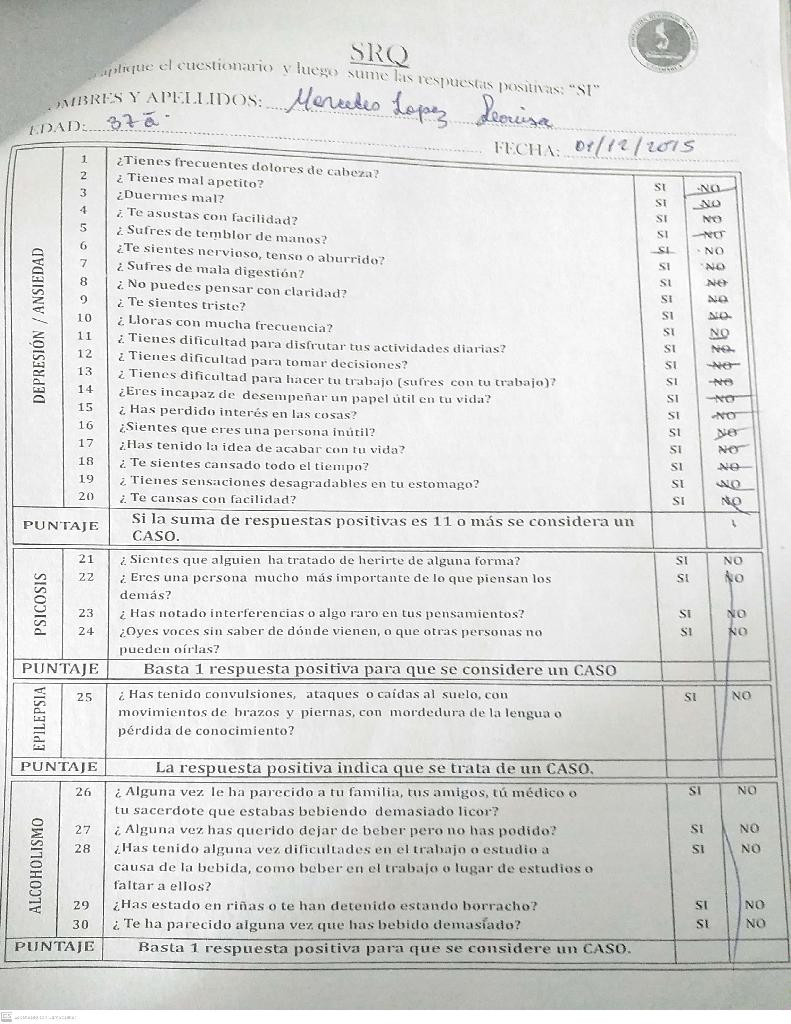 SRQ
aplique el cuestionario y luego sume las respuestas positivas: "SI"
OMBRES Y APELLIDOS: Mercedes Lopez
EDAD: 37 a
FECHA: 01/12/2015
DEPRESIÓN / ANSIEDAD
1 ¿Tienes frecuentes dolores de cabeza? SI NO
2 ¿ Tienes mal apetito? SI NO
3 ¿Duermes mal? SI NO
4 ¿ Te asustas con facilidad? SI NO
5 ¿ Sufres de temblor de manos? SI NO
6 ¿Te sientes nervioso, tenso o aburrido? SI NO
7 ¿ Sufres de mala digestión? SI NO
8 ¿ No puedes pensar con claridad? SI NO
9 ¿ Te sientes triste? SI NO
10 ¿ Lloras con mucha frecuencia? SI NO
11 ¿ Tienes dificultad para disfrutar tus actividades diarias? SI NO
12 ¿ Tienes dificultad para tomar decisiones? SI NO
13 ¿ Tienes dificultad para hacer tu trabajo (sufres con tu trabajo)? SI NO
14 ¿Eres incapaz de desempeñar un papel útil en tu vida? SI NO
15 ¿ Has perdido interés en las cosas? SI NO
16 ¿Sientes que eres una persona inútil? SI NO
17 ¿Has tenido la idea de acabar con tu vida? SI NO
18 ¿ Te sientes cansado todo el tiempo? SI NO
19 ¿ Tienes sensaciones desagradables en tu estomago? SI NO
20 ¿ Te cansas con facilidad? SI NO
PUNTAJE Si la suma de respuestas positivas es 11 o más se considera un
CASO.
PSICOSIS
21 ¿ Sientes que alguien ha tratado de herirte de alguna forma? SI NO
22 ¿ Eres una persona mucho más importante de lo que piensan los SI NO
demás?
23 ¿ Has notado interferencias o algo raro en tus pensamientos? SI NO
24 ¿Oyes voces sin saber de dónde vienen, o que otras personas no SI NO
pueden oírlas?
PUNTAJE Basta 1 respuesta positiva para que se considere un CASO
EPILEPSIA
25 ¿ Has tenido convulsiones, ataques o caídas al suelo, con SI NO
movimientos de brazos y piernas, con mordedura de la lengua o
pérdida de conocimiento?
PUNTAJE La respuesta positiva indica que se trata de un CASO.
ALCOHOLISMO
26 ¿ Alguna vez le ha parecido a tu familia, tus amigos, tú médico o SI NO
tu sacerdote que estabas bebiendo demasiado licor?
27 ¿ Alguna vez has querido dejar de beber pero no has podido? SI NO
28 ¿Has tenido alguna vez dificultades en el trabajo o estudio a SI NO
causa de la bebida, como beber en el trabajo o lugar de estudios o
faltar a ellos?
29 ¿Has estado en riñas o te han detenido estando borracho? SI NO
30 ¿ Te ha parecido alguna vez que has bebido demasíado? SI NO
PUNTAJE Basta 1 respuesta positiva para que se considere un CASO.